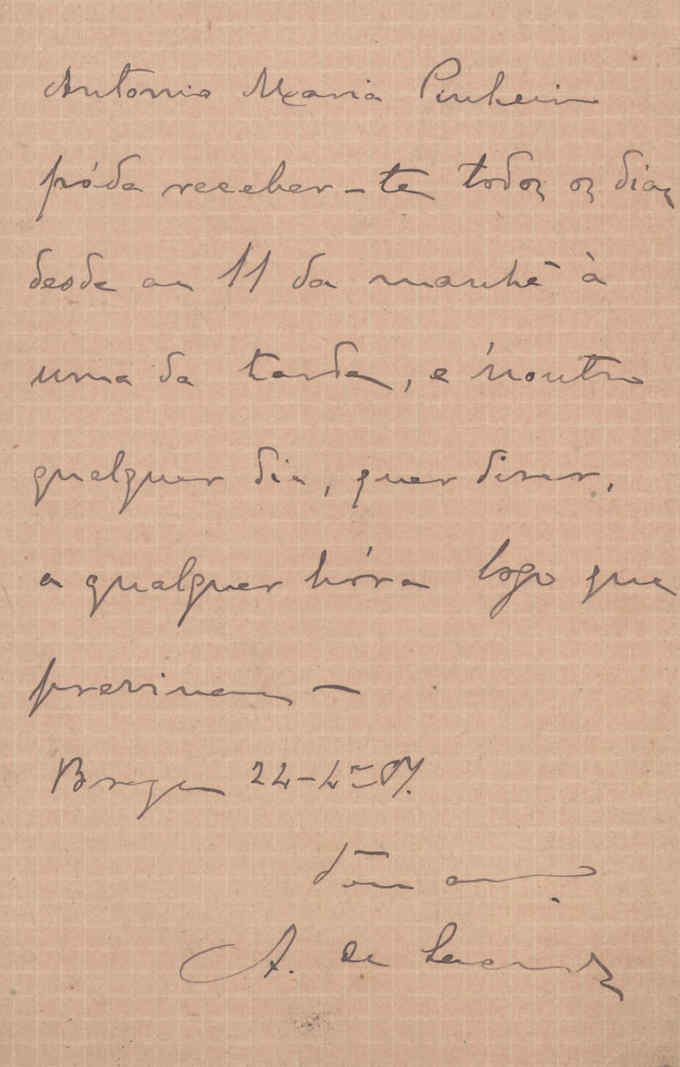 Antonio Maria Pinheiro
póde receber-te todos os dias
desde as 11 da manhã á
uma da tarde, e n'outro
qualquer dia, quer dizer,
a qualquer hóra logo que
previnam —
Braga 22-4-87.
A. de